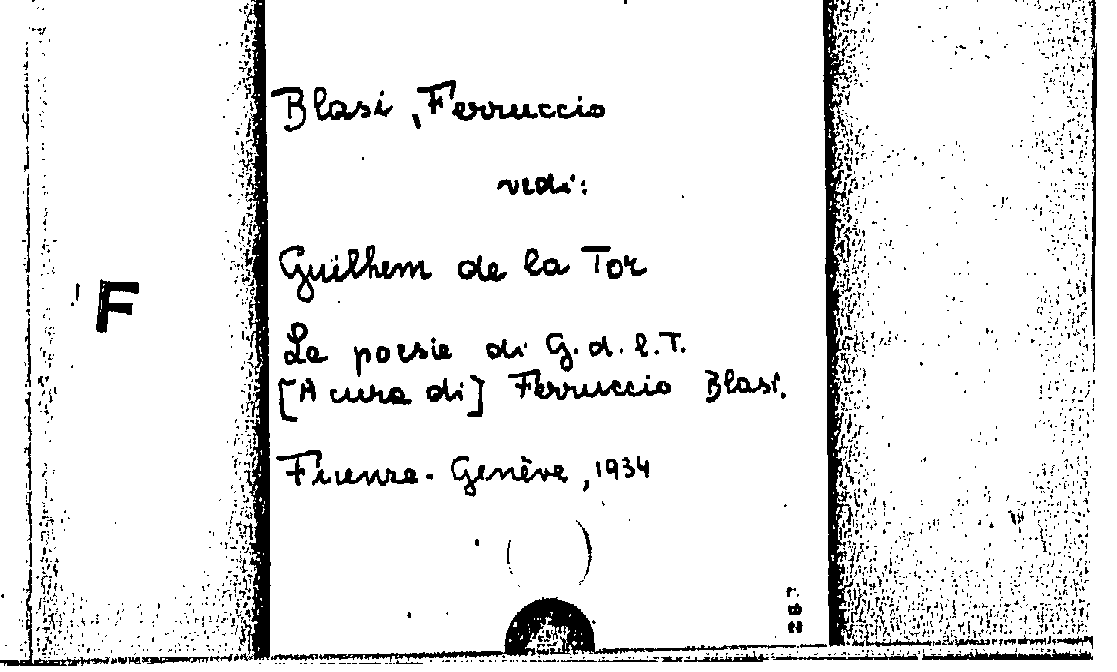 Blasi, Ferruccio
vedi:
Guilhem de la Tor
F
Le poesie di G. d. l. T.
[A cura di] Ferruccio Blasi.
Firenze - Genève, 1934